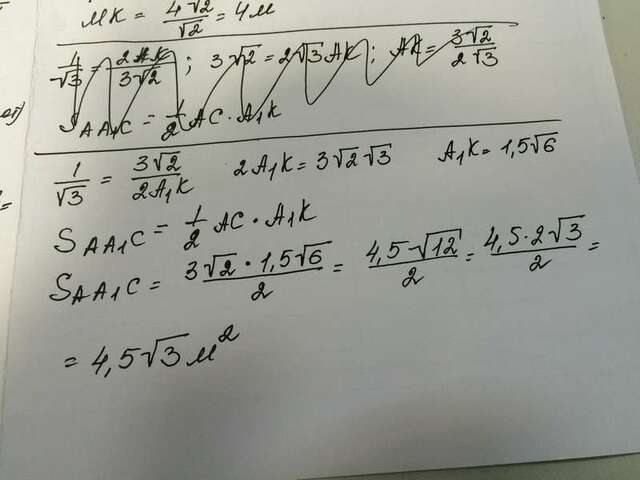 MK = 4√2/√2 = 4м
1/√3 = 2AK/3√2 ; 3√2 = 2√3 AK ; AK = 3√2/2√3
S AA₁C = 1/2 AC · A₁K
1/√3 = 3√2/2A₁K 2A₁K = 3√2√3 A₁K = 1,5√6
S AA₁C = 1/2 AC · A₁K
S AA₁C = 3√2 · 1,5√6/2 = 4,5 · √12/2 = 4,5 · 2√3/2 =
= 4,5√3 м²